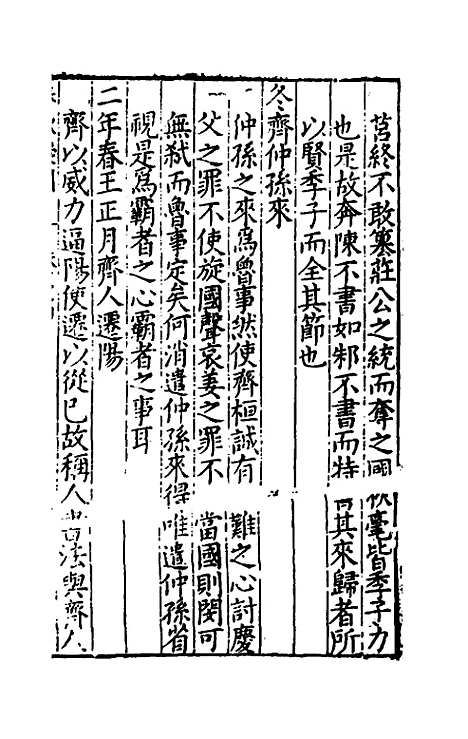 莒終不敢篡莊公之統而奪之國秋毫皆季子力
也是故奔陳不書如邾不書而特書其來歸者所
以賢季子而全其節也
冬齊仲孫來
仲孫之來爲魯事然使齊桓誠有難之心討慶
父之罪不使旋國聲哀姜之罪不當國則閔可
無弑而魯事定矣何消遣仲孫來得唯遣仲孫省
視是爲霸者之心霸者之事耳
二年春王正月齊人遷陽
齊以威力逼陽使遷以從已故稱人書法與齊人